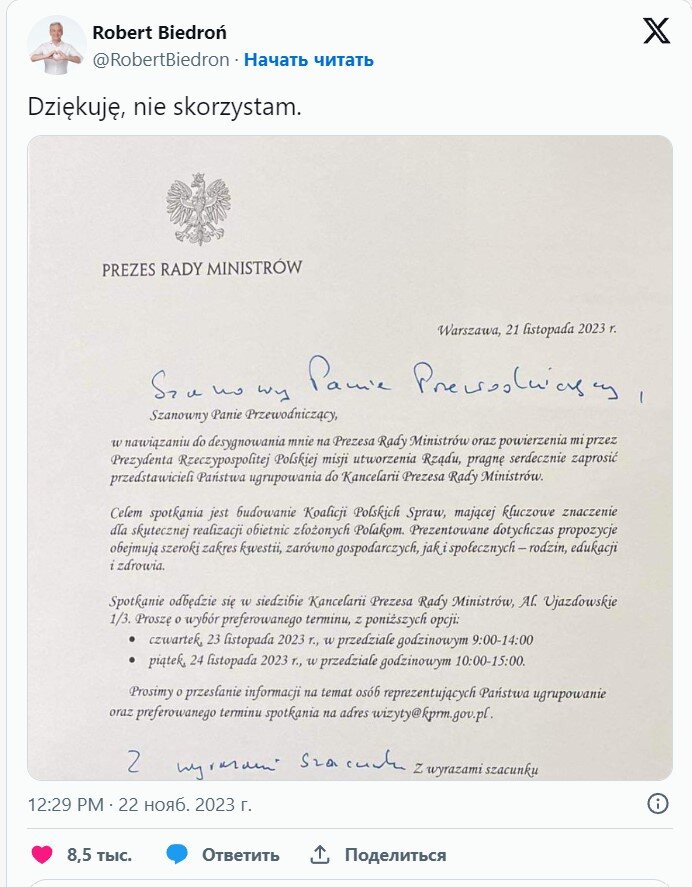 Robert Biedroń
@RobertBiedron · Начать читать
Dziękuję, nie skorzystam.
PREZES RADY MINISTRÓW
Warszawa, 21 listopada 2023 r.
Szanowny Panie Przewodniczący,
Szanowny Panie Przewodniczący,
w nawiązaniu do desygnowania mnie na Prezesa Rady Ministrów oraz powierzenia mi przez
Prezydenta Rzeczypospolitej Polskiej misji utworzenia Rządu, pragnę serdecznie zaprosić
przedstawicieli Państwa ugrupowania do Kancelarii Prezesa Rady Ministrów.
Celem spotkania jest budowanie Koalicji Polskich Spraw, mającej kluczowe znaczenie
dla skutecznej realizacji obietnic złożonych Polakom. Prezentowane dotychczas propozycje
obejmują szeroki zakres kwestii, zarówno gospodarczych, jak i społecznych – rodzin, edukacji
i zdrowia.
Spotkanie odbędzie się w siedzibie Kancelarii Prezesa Rady Ministrów, Al. Ujazdowskie
1/3. Proszę o wybór preferowanego terminu, z poniższych opcji:
• czwartek, 23 listopada 2023 r., w przedziale godzinowym 9:00-14:00
• piątek, 24 listopada 2023 r., w przedziale godzinowym 10:00-15:00.
Prosimy o przesłanie informacji na temat osób reprezentujących Państwa ugrupowanie
oraz preferowanego terminu spotkania na adres wizyty@kprm.gov.pl.
Z wyrazami szacunku Z wyrazami szacunku
12:29 PM · 22 нояб. 2023 г.
8,5 тыс. Ответить Поделиться